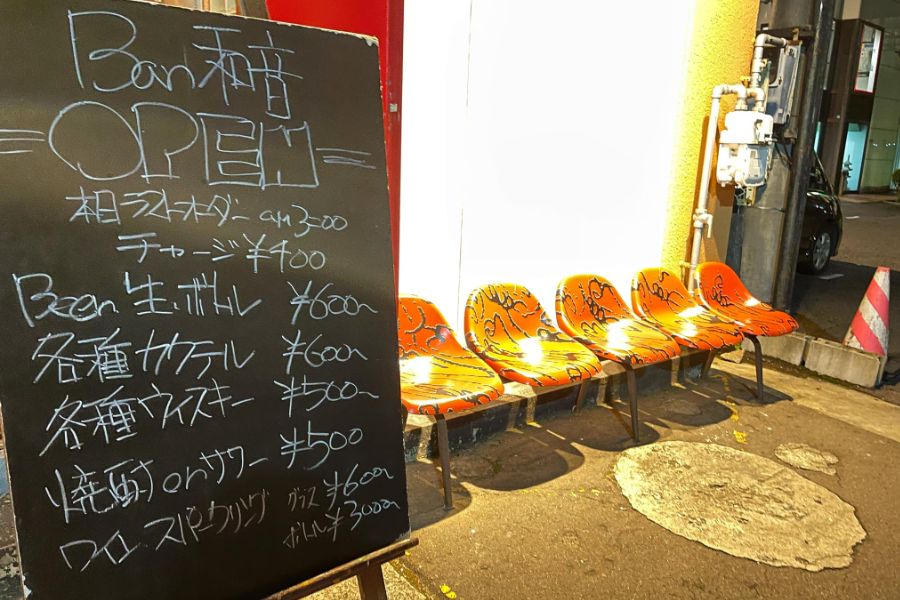 Ban 和音
OPEN
本日ラストオーダー am 3:00
チャージ ¥400
Beer 生.ボトル ¥600〜
各種カクテル ¥600〜
各種ウイスキー ¥500〜
焼酎 or サワー ¥500
ワイン スパークリング グラス ¥600〜
ボトル ¥3000〜